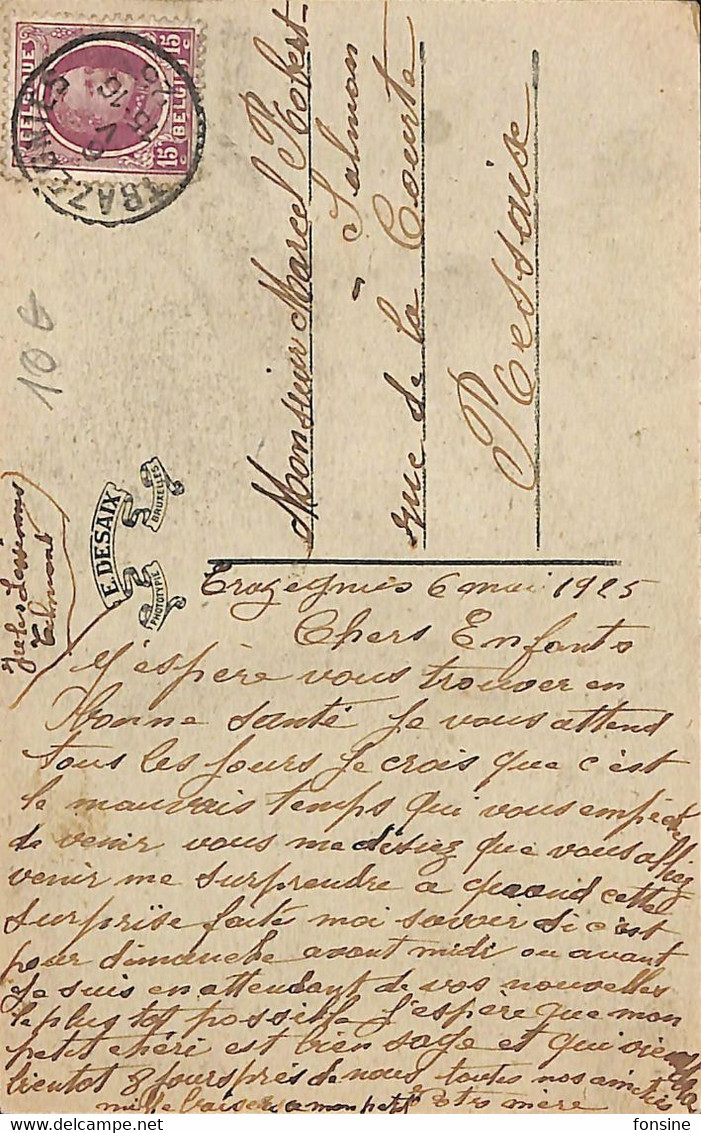 BELGIQUE BELGIË
15 15
TRAZEGNIES
10 €
Monsieur Marcel Robert-
Salmon
- rue de la Courte
Ressaix
E. DESAIX
PHOTOTYPIE BRUXELLES
Jules
Trazegnies 6 mai 1925
Chers Enfants
J'espère vous trouver en
bonne santé je vous attend
tous les jours je crois que c'est
le mauvais temps qui vous empêche
de venir vous me disiez que vous alliez
venir me surprendre a quand cette
surprise faite moi savoir si c'est
pour dimanche avant midi ou avant
je suis en attendant de vos nouvelles
le plus tot possible j'espère que mon
petit chéri est bien sage et qui
bientot 8 jours près de nous toutes nos amitiés
mille baisers a mon petit votre mère
fonsine